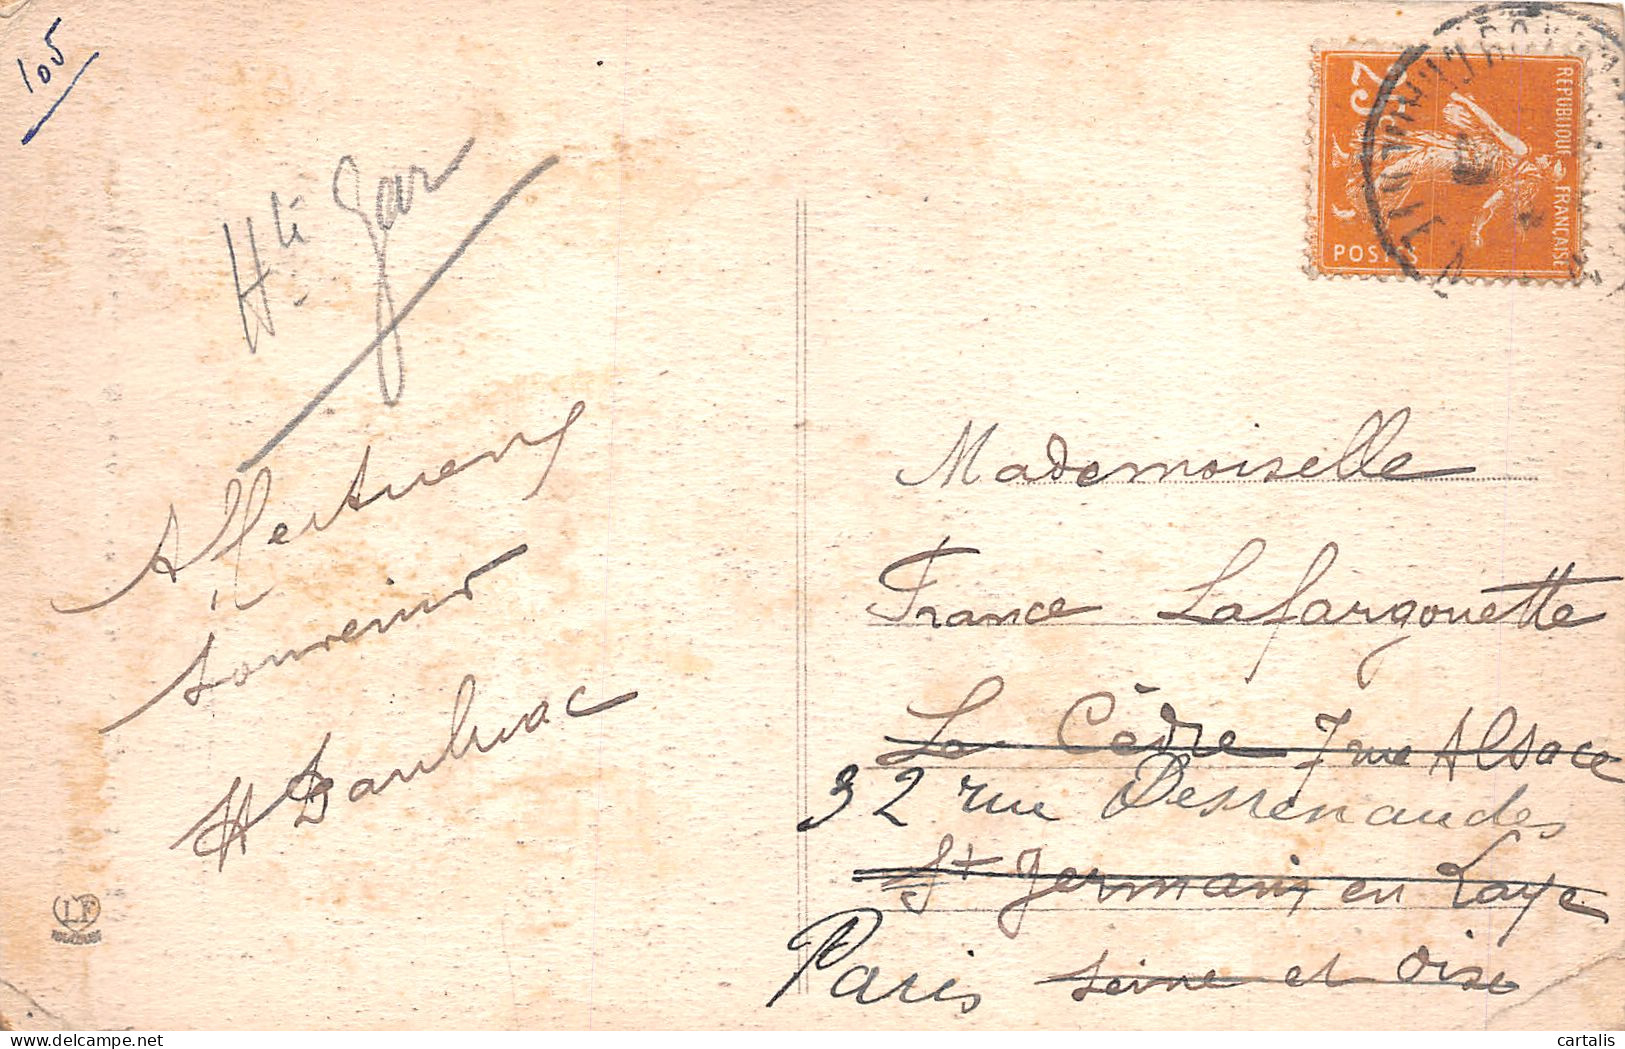 105
Hte Gar
Affectueux
souvenirs
H Daulnac
LF
REPUBLIQUE FRANÇAISE
25
POSTES
Mademoiselle
France Lafargouette
Le Cèdre 7 rue Alsace
32 rue Desrenaudes
St Germain en Laye
Paris Seine et Oise
cartalis
delcampe.net